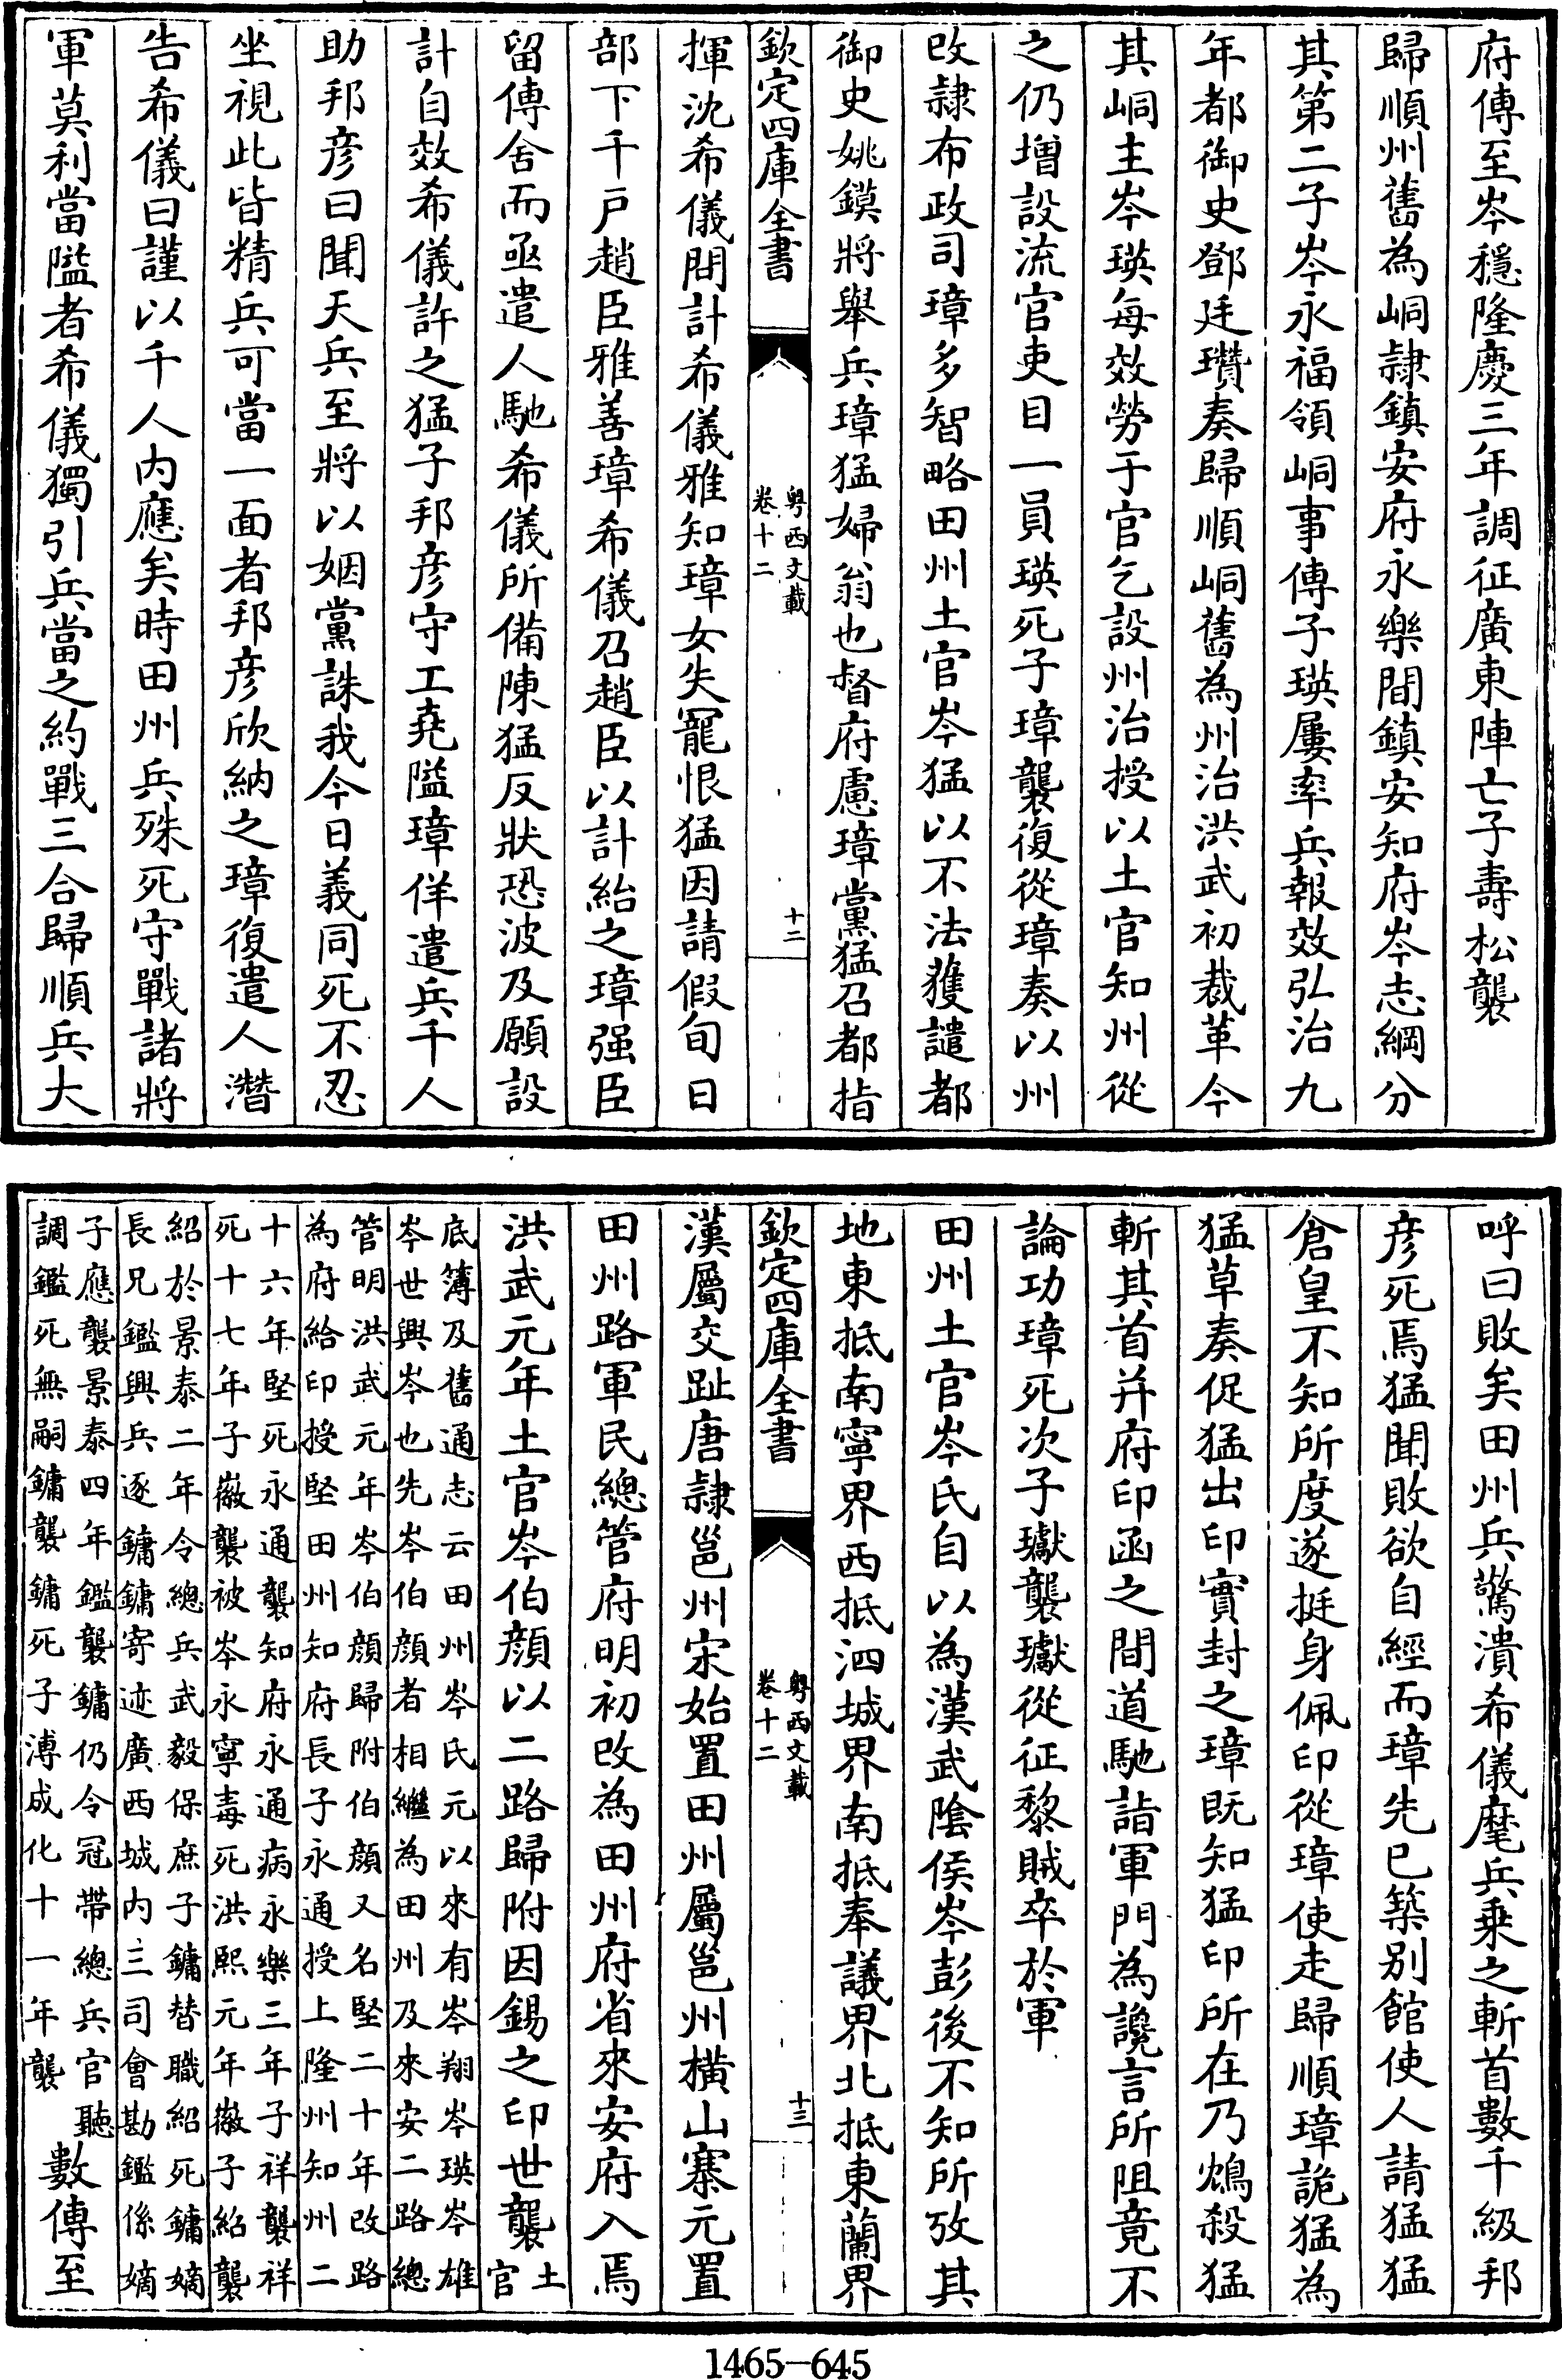 府傳至岑穩隆慶三年調征廣東陣亡子壽松襲
歸順州舊為峒隸鎮安府永樂間鎮安知府岑志綱分
其第二子岑永福領峒事傳子瑛屢率兵報效弘治九
年都御史鄧廷瓚奏歸順峒舊為州治洪武初裁革今
其峒主岑瑛每效勞于官乞設州治授以土官知州從
之仍增設流官吏目一員瑛死子璋襲復從璋奏以州
改隸布政司璋多智略田州土官岑猛以不法獲譴都
御史姚鏌將舉兵璋猛婦翁也督府慮璋黨猛召都指
欽定四庫全書
粤西文載
卷十二
十二
揮沈希儀問計希儀雅知璋女失寵恨猛因請假旬日
部下千戶趙臣雅善璋希儀召趙臣以計紿之璋强臣
留傳舍而亟遣人馳希儀所備陳猛反狀恐波及願設
計自效希儀許之猛子邦彦守工堯隘璋佯遣兵千人
助邦彦曰聞天兵至將以姻黨誅我今日義同死不忍
坐視此皆精兵可當一面者邦彦欣納之璋復遣人潛
告希儀曰謹以千人内應矣時田州兵殊死守戰諸將
軍莫利當隘者希儀獨引兵當之約戰三合歸順兵大
呼曰敗矣田州兵驚潰希儀麾兵乗之斬首數千級邦
彦死焉猛聞敗欲自經而璋先已築别館使人請猛猛
倉皇不知所度遂挺身佩印從璋使走歸順璋詭猛為
猛草奏促猛出印實封之璋既知猛印所在乃鴆殺猛
斬其首并府印函之間道馳詣軍門為讒言所阻竟不
論功璋死次子瓛襲瓛從征黎賊卒於軍
田州土官岑氏自以為漢武隂侯岑彭後不知所攷其
地東抵南寧界西抵泗城界南抵奉議界北抵東蘭界
欽定四庫全書
粤西文載
卷十二
十三
漢屬交趾唐隸邕州宋始置田州屬邕州橫山寨元置
田州路軍民總管府明初改為田州府省來安府入焉
洪武元年土官岑伯顔以二路歸附因錫之印世襲土官
底簿及舊通志云田州岑氏元以來有岑翔岑瑛岑雄
岑世興岑也先岑伯顔者相繼為田州及來安二路總
管明洪武元年岑伯顔歸附伯顔又名堅二十年改路
為府給印授堅田州知府長子永通授上隆州知州二
十六年堅死永通襲知府永通病永樂三年子祥襲祥
死十七年子徽襲被岑永寧毒死洪熙元年徽子紹襲
紹於景泰二年令總兵武毅保庶子鏞替職紹死鏞嫡
長兄鑑興兵逐鏞鏞寄迹廣西城内三司會勘鑑係嫡
子應襲景泰四年鑑襲鏞仍令冠帶總兵官聽
調鑑死無嗣鏞襲鏞死子溥成化十一年襲
數傳至
1465—645